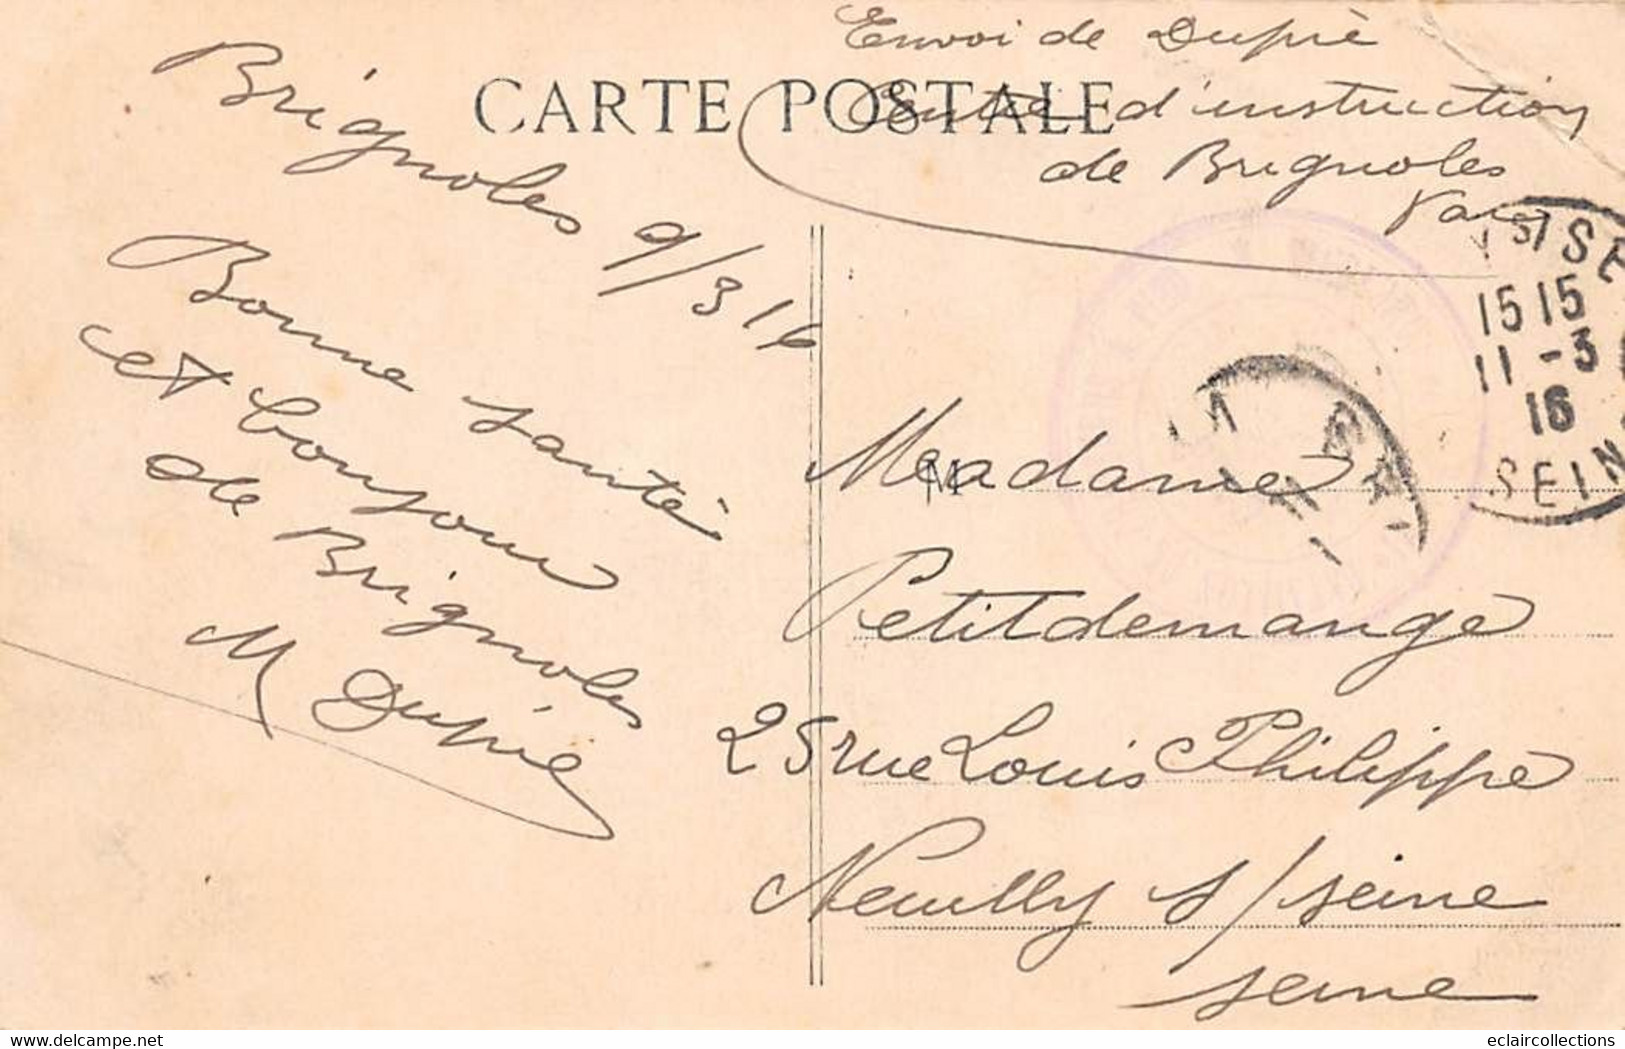 Envoi de Dupré
CARTE POSTALE
Centre d'instruction
de Brignoles
Var
Brignoles 9/3 16
Bonne santé
et bonjour
de Brignoles
M Dupré
15 15
11 - 3
16
SEINE
M
Madame
Petitdemange
25 rue Louis Philippe
Neuilly s/seine
seine
eclaircollections